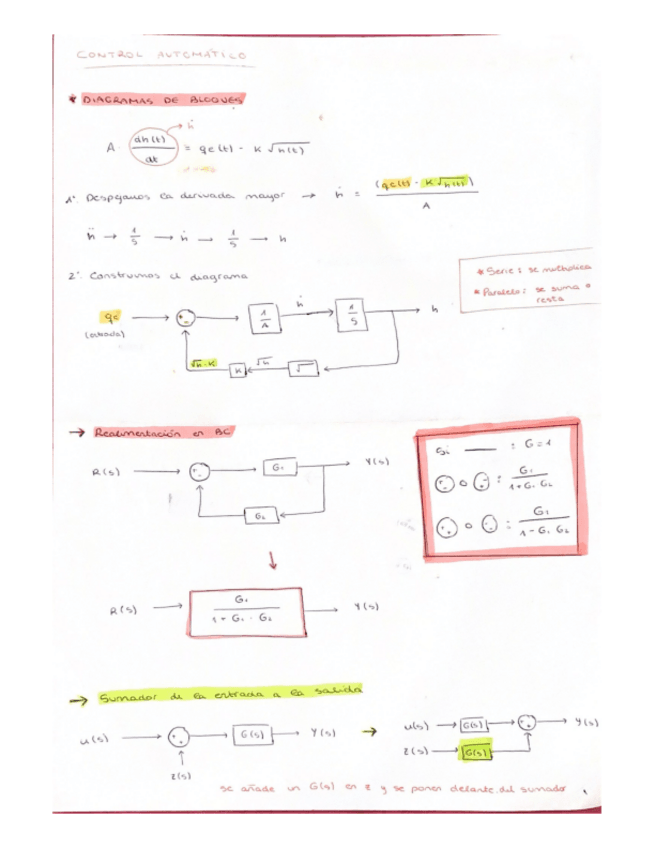 CONTROL AUTOMÁTICO
* DIAGRAMAS DE BLOQUES
ḣ
A · dh(t)/dt = qe(t) - K √h(t)
1º. Despejamos la derivada mayor → ḣ = (qe(t) - K√h(t)) / A
ḧ → 1/S → ḣ → 1/S → h
2º. Construimos el diagrama
* Serie: se multiplica
* Paralelo: se suma o
resta
qe → + - → 1/A → ḣ → 1/S → h
(entrada)
√h·K K √h √
→ Realimentación en BC
Si — : G = 1
R(s) → + - → G1 → Y(s)
G2
+ - o - + : G1 / 1 + G1 G2
+ + o - - : G1 / 1 - G1 G2
R(s) → G1 / 1 + G1 · G2 → Y(s)
→ Sumador de la entrada a la salida
u(s) → + + → G(s) → Y(s) → u(s) → G(s) → + + → Y(s)
z(s) z(s) → G(s)
se añade un G(s) en z y se ponen delante del sumador